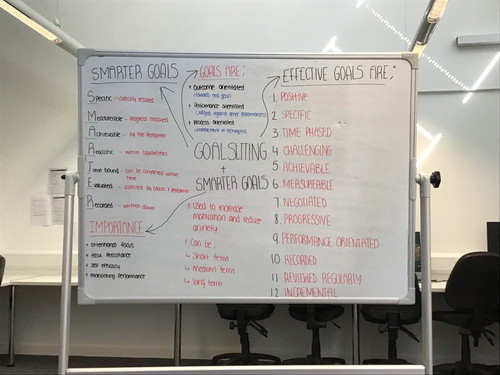 SMARTER GOALS
Specific - clearly stated
Measurable - progress tracked
Achievable - by the performer
Realistic - within capabilities
Time bound - can be completed within time
Evaluated - assessed by coach + performer
Recorded - written down
IMPORTANCE
+ attentional focus
+ task persistance
+ self efficacy
+ monitoring performance
GOALS ARE:
+ Outcome orientated
(towards end goal)
+ Performance orientated
(judged against other performances)
+ Process orientated
(improvement in techniques)
GOALSETTING
+
SMARTER GOALS
+ Used to increase
motivation and reduce
anxiety
+ Can be;
↳ short term
↳ medium term
↳ long term
EFFECTIVE GOALS ARE;
1. POSITIVE
2 SPECIFIC
3. TIME PHASED
4 CHALLENGING
5 ACHIEVABLE
6. MEASUREABLE
7. NEGOTIATED
8. PROGRESSIVE
9. PERFORMANCE ORIENTATED
10. RECORDED
11 REVIEWED REGULARLY
12. INCREMENTAL